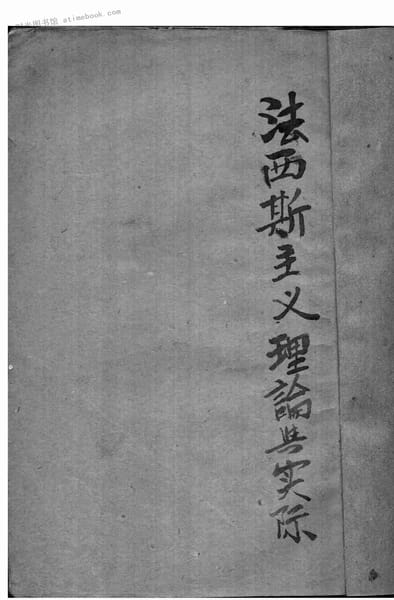 时光图书馆 atimebook.com
法西斯主义理論与实际